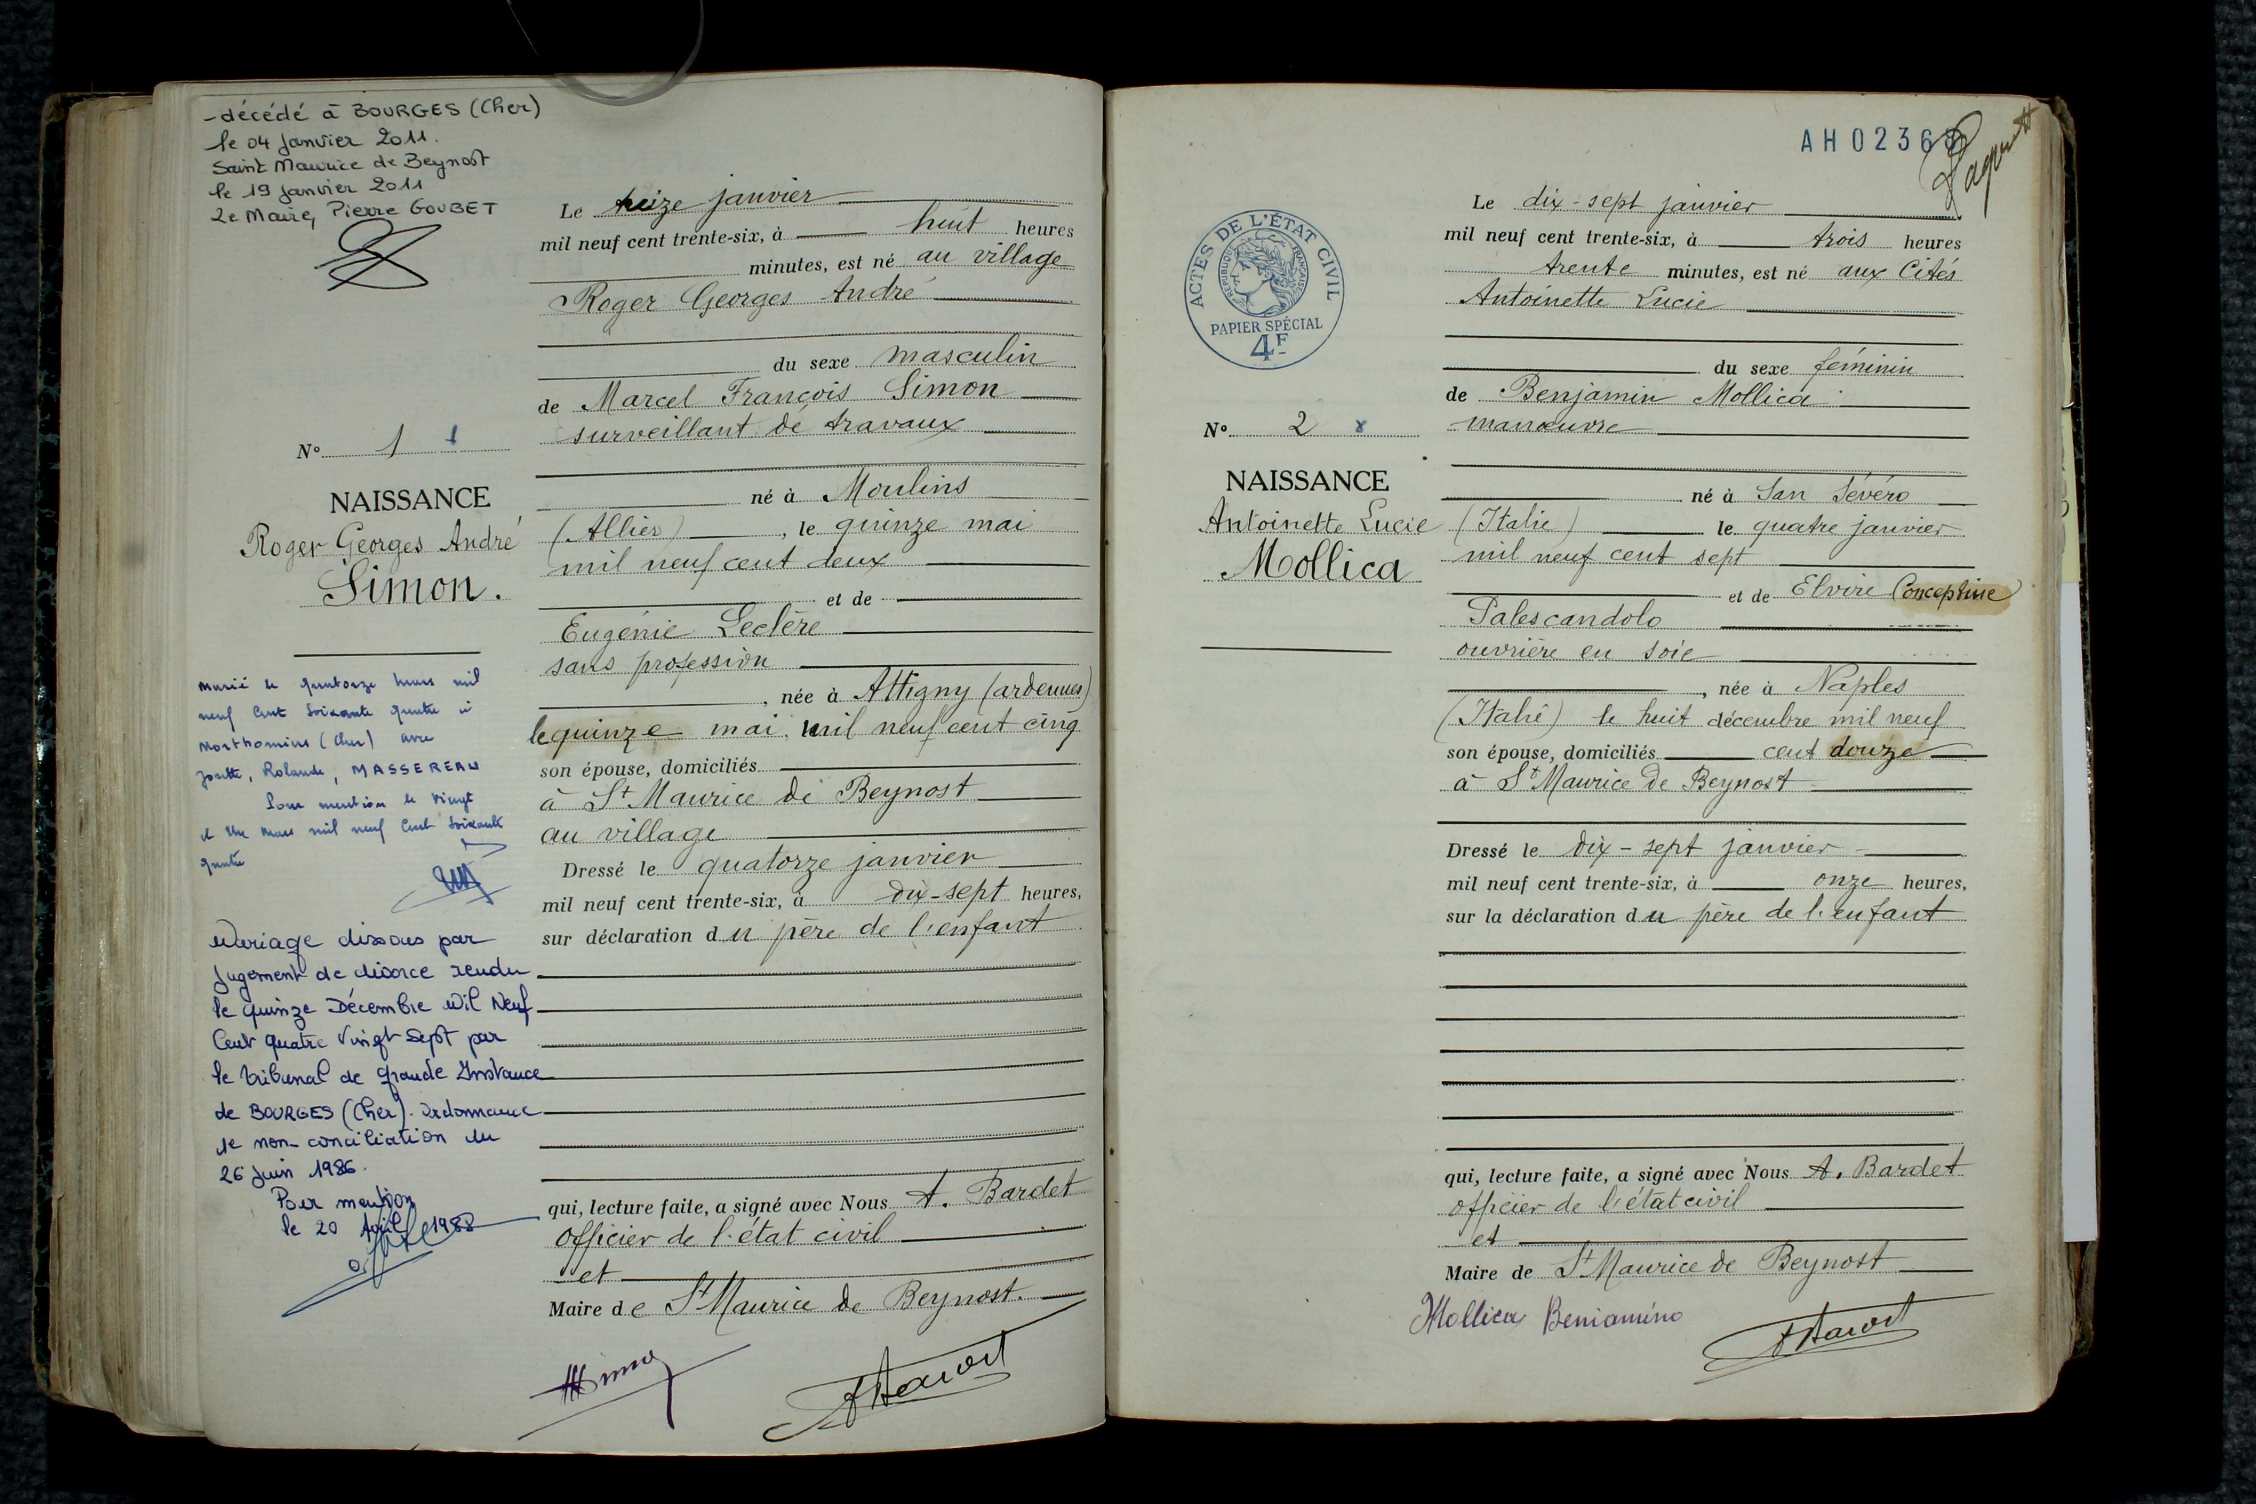 -décédé à BOURGES (Cher)
le 04 Janvier 2011.
Saint Maurice de Beynost
le 19 Janvier 2011
Le Maire, Pierre GOUBET
N° 1 1
NAISSANCE
Roger Georges André
Simon.
Marié le quatorze mars mil
neuf cent soixante quatre à
Morthomiers (Cher) avec
Rolande, MASSEREAU
Pour mention le vingt
et un mars mil neuf cent soixante
quatre
Mariage dissous par
Jugement de divorce rendu
le quinze Décembre Mil Neuf
Cent quatre Vingt Sept par
le Tribunal de Grande Instance
de BOURGES (Cher). Ordonnance
de non-conciliation du
26 Juin 1986.
Pour mention
le 20 Avril 1988
Le treize janvier
mil neuf cent trente-six, à huit heures
minutes, est né au village
Roger Georges André
du sexe masculin
de Marcel François Simon
surveillant de travaux
né à Moulins
(Allier), le quinze mai
mil neuf cent deux
et de
Eugénie Leclère
sans profession
, née à Attigny (ardennes)
le quinze mai mil neuf cent cinq
son épouse, domiciliés
à St Maurice de Beynost
au village
Dressé le quatorze janvier
mil neuf cent trente-six, à dix-sept heures,
sur déclaration du père de l'enfant
qui, lecture faite, a signé avec Nous A. Bardet
officier de l'état civil
et
Maire de St Maurice de Beynost.
AH0236
ACTES DE L'ÉTAT CIVIL
RÉPUBLIQUE FRANÇAISE
PAPIER SPÉCIAL
4F
N° 2
NAISSANCE
Antoinette Lucie
Mollica
Le dix-sept janvier
mil neuf cent trente-six, à trois heures
trente minutes, est né aux Cités
Antoinette Lucie
du sexe féminin
de Benjamin Mollica
manœuvre
né à San Sévéro
(Italie) le quatre janvier
mil neuf cent sept
et de Elvire Conceptine
Palescandolo
ouvrière en soie
, née à Naples
(Italie) le huit décembre mil neuf
son épouse, domiciliés cent douze
à St Maurice de Beynost
Dressé le dix-sept janvier
mil neuf cent trente-six, à onze heures,
sur la déclaration du père de l'enfant
qui, lecture faite, a signé avec Nous A. Bardet
officier de l'état civil
et
Maire de St Maurice de Beynost
Mollica Beniamino